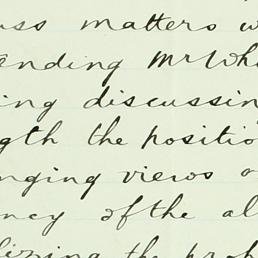 uss matters w
ending Mr Wh
ing discussin
gth the positio
nging views a
ncy of the al
the prob